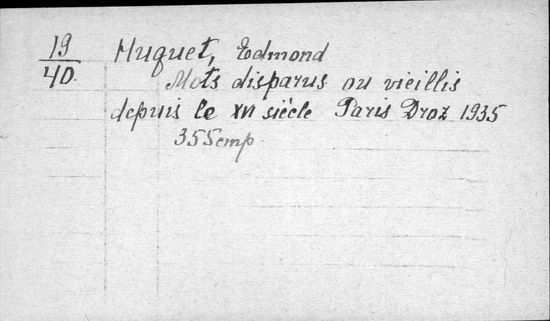 19
40.
Huguet, Edmond
Mots disparus ou vieillis
depuis le XVI siècle Paris Droz 1935
355emp